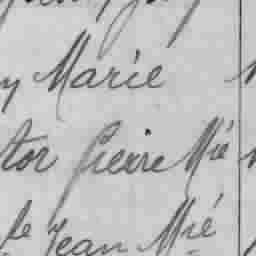 y Marie
tor Pierre Mié
le Jean Mié